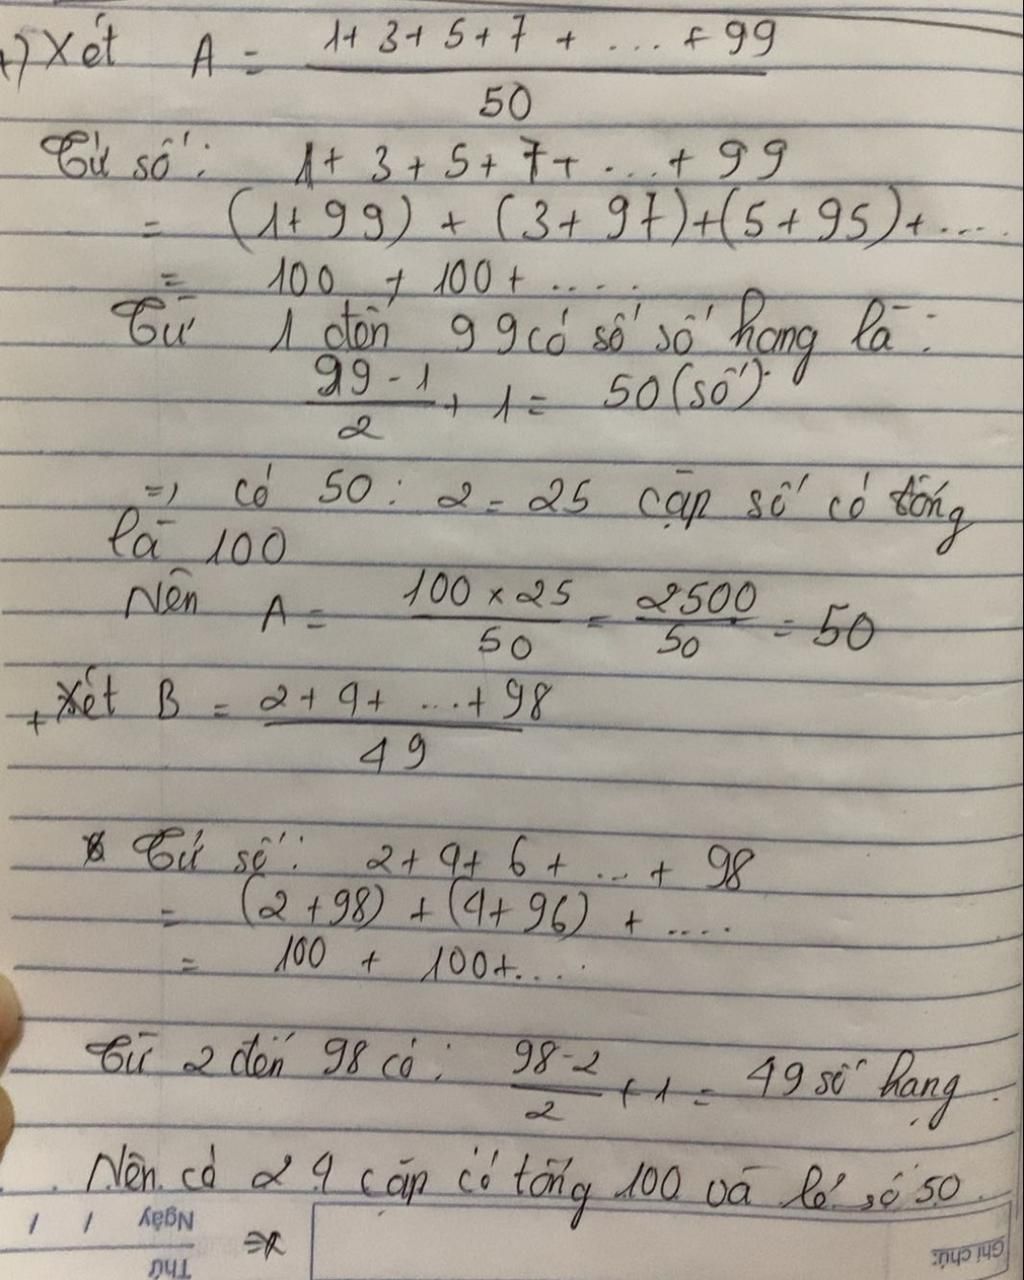 +) Xét A = \frac{1+3+5+7+...+99}{50}
Tử số: 1+3+5+7+...+99
= (1+99) + (3+97)+(5+95)+....
= 100 + 100+....
Từ 1 đến 99 có số số hạng là:
\frac{99-1}{2} + 1 = 50 (số).
=> có 50 : 2 = 25 cặp số có tổng
là 100
Nên A = \frac{100 × 25}{50} = \frac{2500}{50} = 50
+ Xét B = \frac{2+4+...+98}{49}
Tử số: 2+4+6+...+98
= (2+98) + (4+96) + ....
= 100 + 100+....
Từ 2 đến 98 có: \frac{98-2}{2} + 1 = 49 số hạng.
Nên có 24 cặp có tổng 100 và lẻ số 50
=>
Ngày / /
Thứ
Ghi chú: